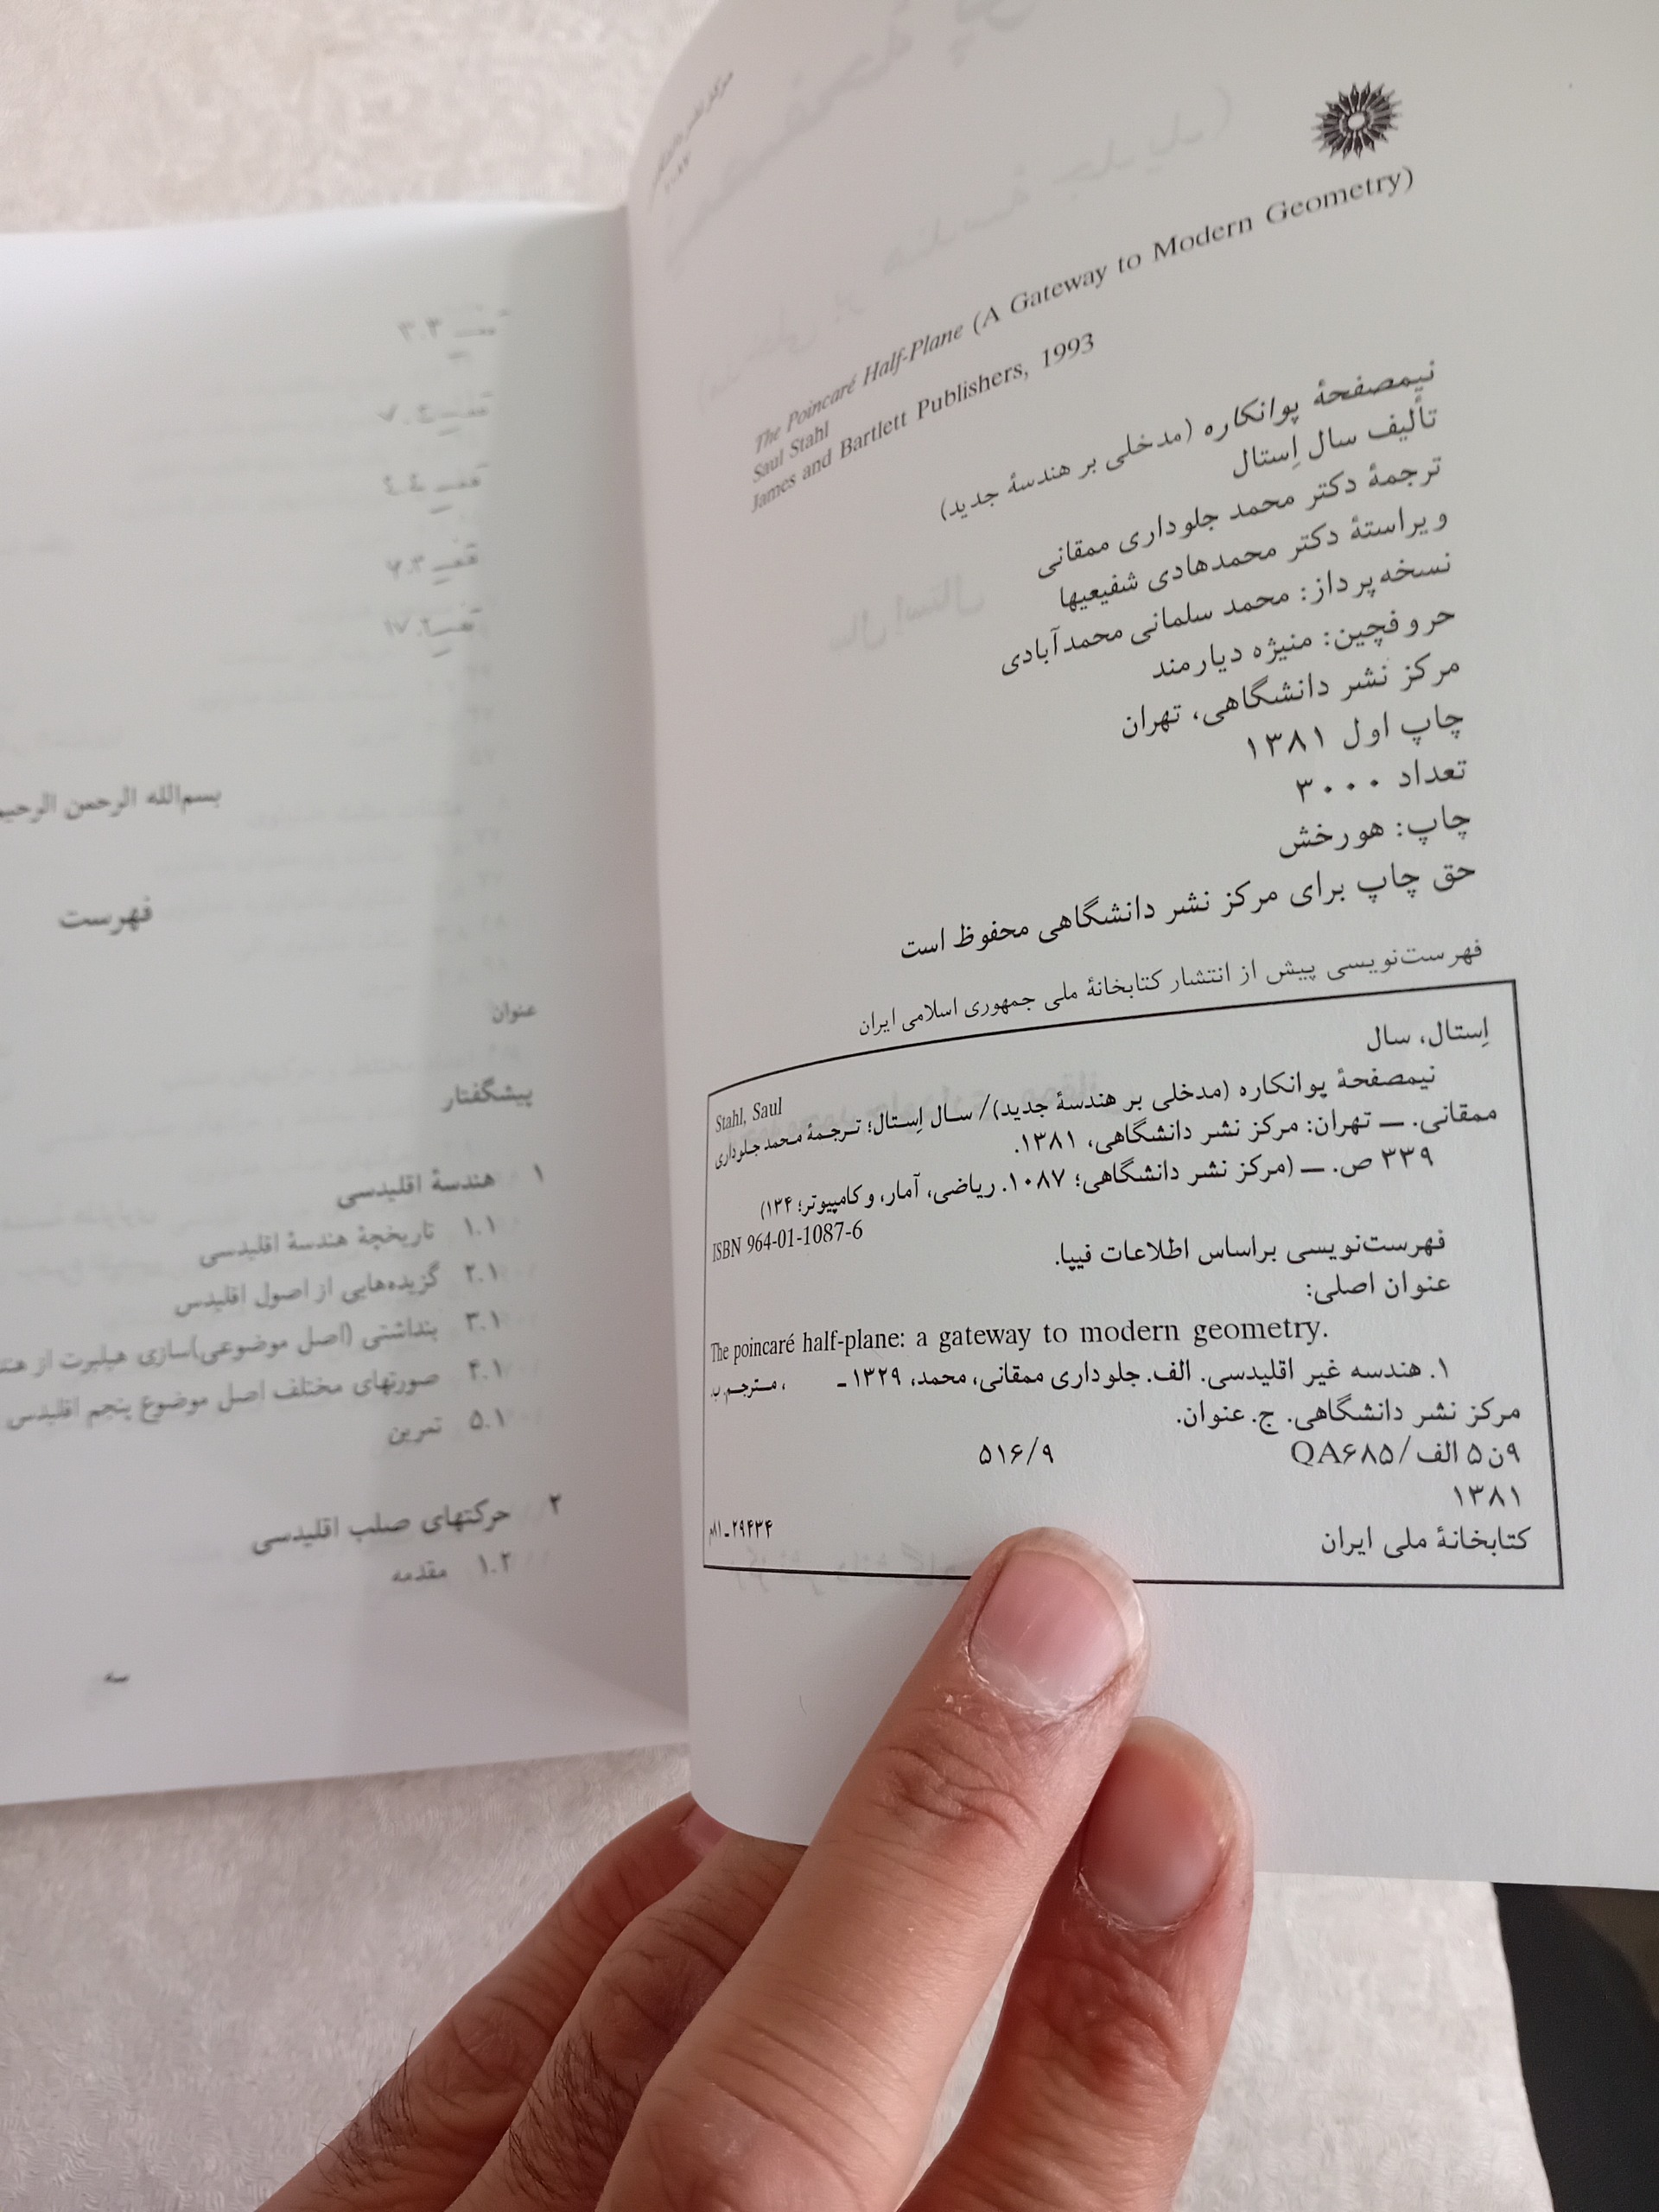 The Poincaré Half-Plane (A Gateway to Modern Geometry)
Saul Stahl
James and Bartlett Publishers, 1993
نیمصفحهٔ پوانکاره (مدخلی بر هندسهٔ جدید)
تألیف سال اِستال
ترجمهٔ دکتر محمد جلوداری ممقانی
ویراستهٔ دکتر محمدهادی شفیعیها
نسخه‌پرداز: محمد سلمانی محمدآبادی
حروفچین: منیژه دیارمند
مرکز نشر دانشگاهی، تهران
چاپ اول ۱۳۸۱
تعداد ۳۰۰۰
چاپ: هورخش
حق چاپ برای مرکز نشر دانشگاهی محفوظ است
فهرست‌نویسی پیش از انتشار کتابخانهٔ ملی جمهوری اسلامی ایران
اِستال، سال
Stahl, Saul
نیمصفحهٔ پوانکاره (مدخلی بر هندسهٔ جدید)/ سال اِستال؛ ترجمهٔ محمد جلوداری
ممقانی. — تهران: مرکز نشر دانشگاهی، ۱۳۸۱.
۳۳۹ ص. — (مرکز نشر دانشگاهی؛ ۱۰۸۷. ریاضی، آمار، و کامپیوتر؛ ۱۳۴)
ISBN 964-01-1087-6
فهرست‌نویسی براساس اطلاعات فیپا.
عنوان اصلی:
The poincaré half-plane: a gateway to modern geometry.
۱. هندسه غیر اقلیدسی. الف. جلوداری ممقانی، محمد، ۱۳۲۹ـ ، مترجم. ب.
مرکز نشر دانشگاهی. ج. عنوان.
۹ن۵الف/QA۶۸۵ ۵۱۶/۹
۱۳۸۱
کتابخانهٔ ملی ایران ۲۹۴۳۴ـ۸۱م
بسم‌الله الرحمن الرحیم
فهرست
عنوان
پیشگفتار
۱ هندسهٔ اقلیدسی
۱.۱ تاریخچهٔ هندسهٔ اقلیدسی
۲.۱ گزیده‌هایی از اصول اقلیدس
۳.۱ بنداشتی (اصل موضوعی)سازی هیلبرت از
۴.۱ صورتهای مختلف اصل موضوع پنجم اقلیدس
۵.۱ تمرین
۲ حرکتهای صلب اقلیدسی
۱.۲ مقدمه
سه